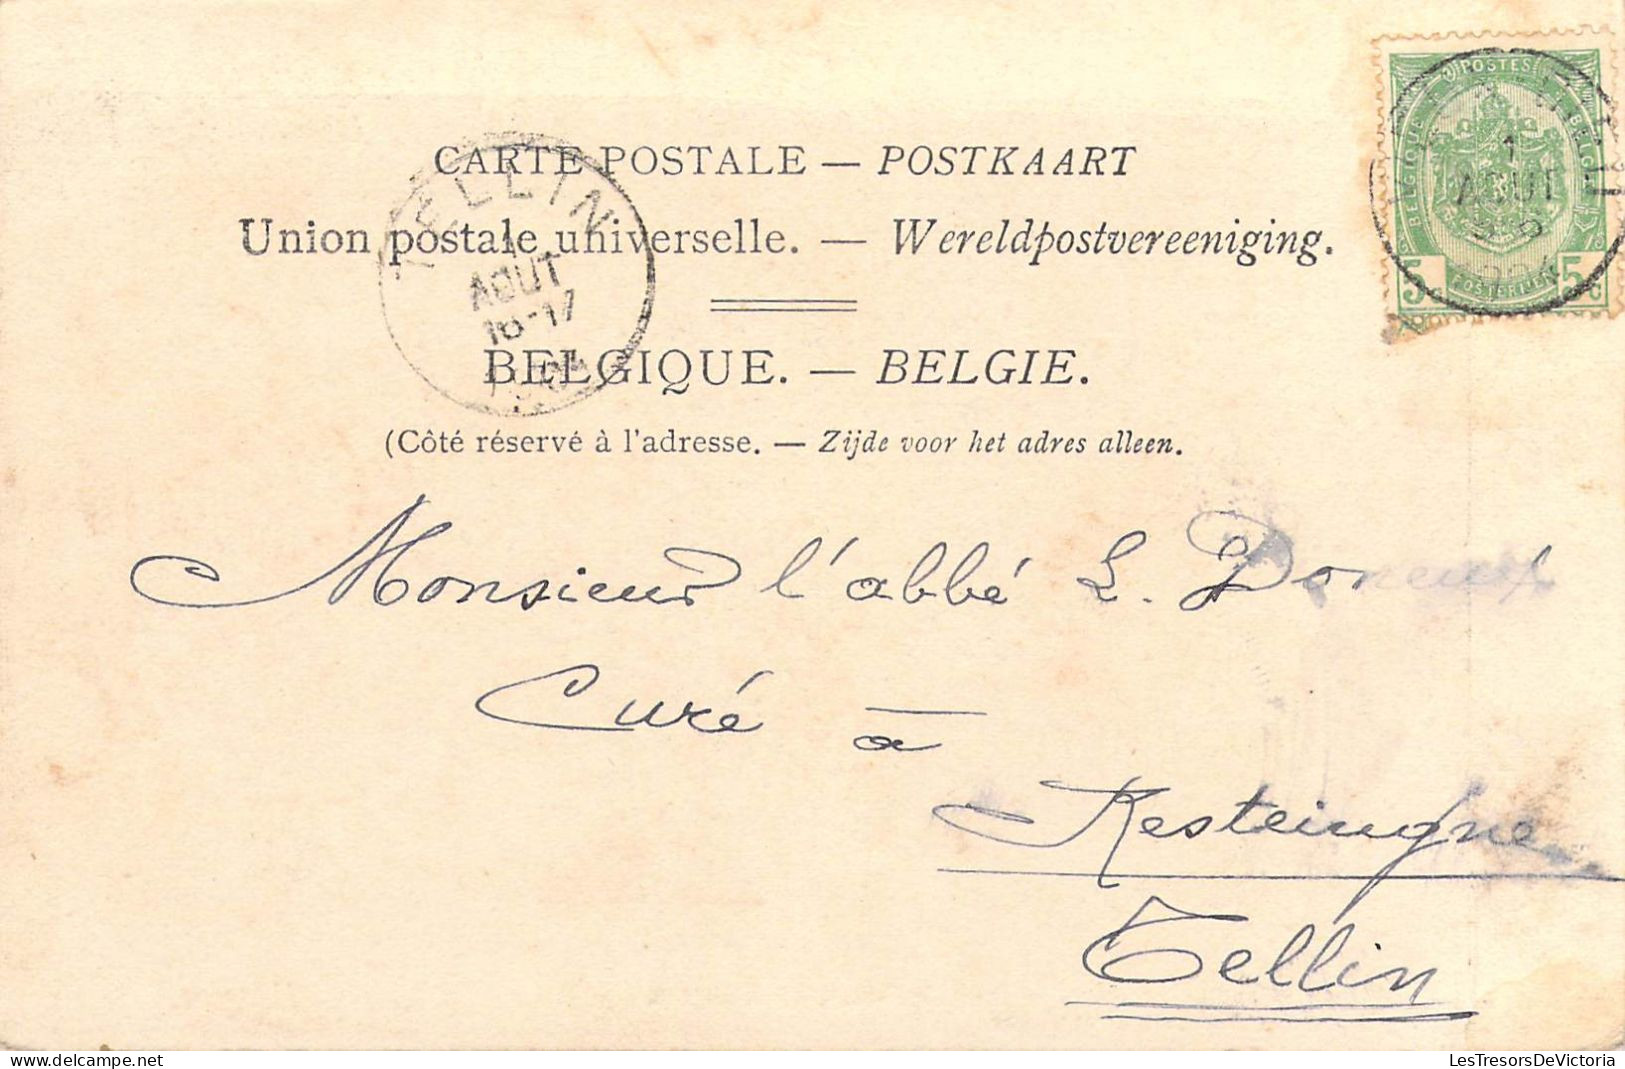 CARTE POSTALE — POSTKAART
Union postale universelle. — Wereldpostvereeniging.
BELGIQUE. — BELGIE.
(Côté réservé à l'adresse. — Zijde voor het adres alleen.
TELLIN
1
AOUT
16-17
04
POSTES
BELGIQUE
BELGIË
1
AOUT
POSTERIJEN
5c 5c
Monsieur l'abbé L. Doneux
Curé à
Resteingne
Tellin
LesTresorsDeVictoria